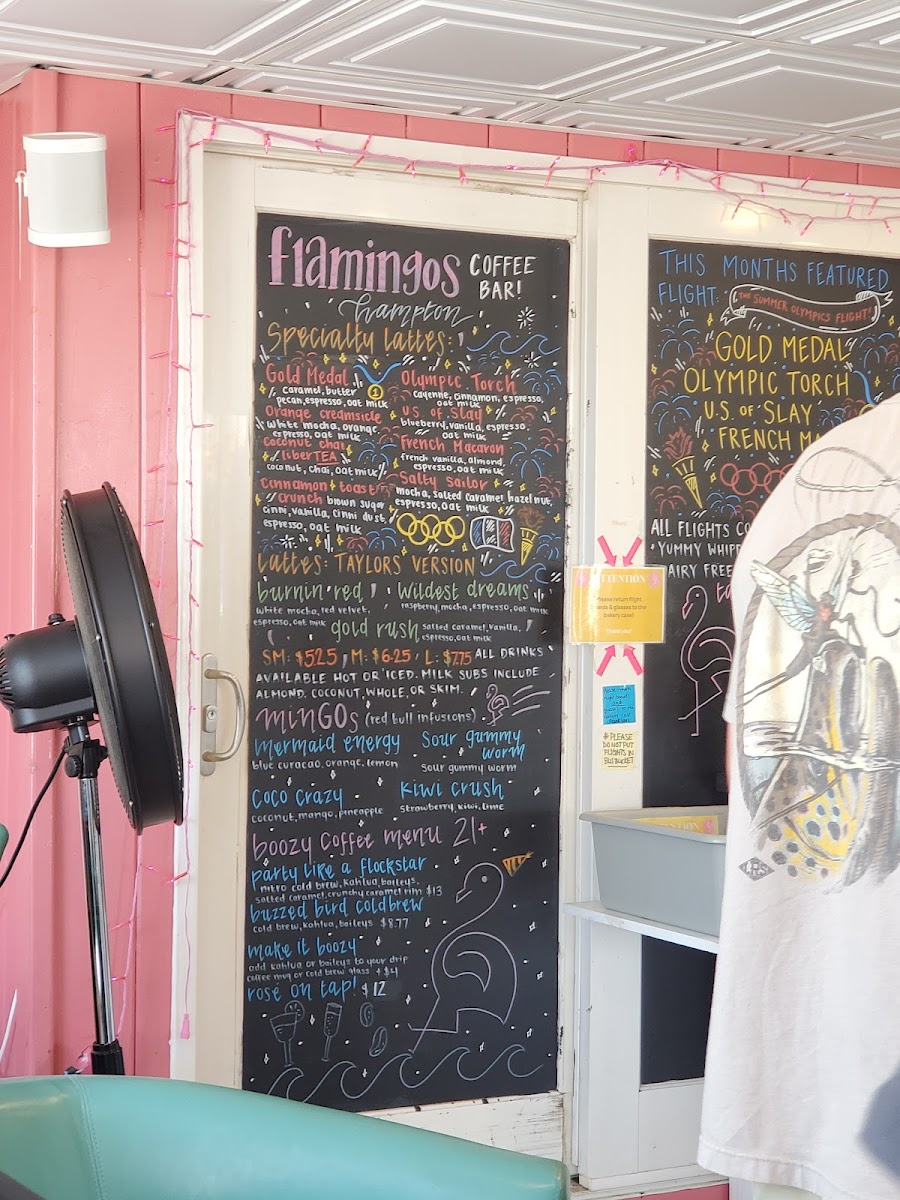 flamingos COFFEE
BAR!
hampton
Specialty lattes:
Gold Medal
caramel, butter
pecan, espresso, oat milk
1
Orange creamsicle
white mocha, orange
espresso, oat milk
coconut chai
liberTEA
coconut, chai, oat milk
cinnamon toast
crunch brown sugar
cinni, vanilla, cinni dust,
espresso, oat milk
Olympic Torch
cayenne, cinnamon, espresso,
oat milk
U.S. of Slay
blueberry, vanilla, espresso,
oat milk
French Macaron
french vanilla, almond,
espresso, oat milk
Salty Sailor
mocha, salted caramel, hazelnut,
espresso, oat milk
lattes: TAYLORS VERSION
burnin' red
white mocha, red velvet,
espresso, oat milk
Wildest dreams
raspberry, mocha, espresso, oat milk
gold rush salted caramel, vanilla,
espresso, oat milk
SM: $5.25, M: $6.25, L: $7.75 ALL DRINKS
AVAILABLE HOT OR ICED. MILK SUBS INCLUDE
ALMOND, COCONUT, WHOLE, OR SKIM.
minGOs (red bull infusions)
mermaid energy
blue curacao, orange, lemon
Sour gummy
worm
sour gummy worm
coco crazy
coconut, mango, pineapple
Kiwi crush
strawberry, kiwi, lime
boozy coffee menu 21+
party like a flockstar
nitro cold brew, kahlua, baileys,
salted caramel, crunchy caramel rim $13
buzzed bird coldbrew
cold brew, kahlua, baileys $8.77
make it boozy
add kahlua or baileys to your drip
coffee mug or cold brew glass +$4
rosé on tap! $12
THIS MONTHS FEATURED
FLIGHT:
"THE SUMMER OLYMPICS FLIGHT"
GOLD MEDAL
OLYMPIC TORCH
U.S. OF SLAY
FRENCH MA
ALL FLIGHTS CO
YUMMY WHIPP
DAIRY FREE
ATTENTION
Please return flight
boards & glasses to the
bakery case!
Thank you!
*PLEASE
DO NOT PUT
FLIGHTS IN
BUS BUCKET